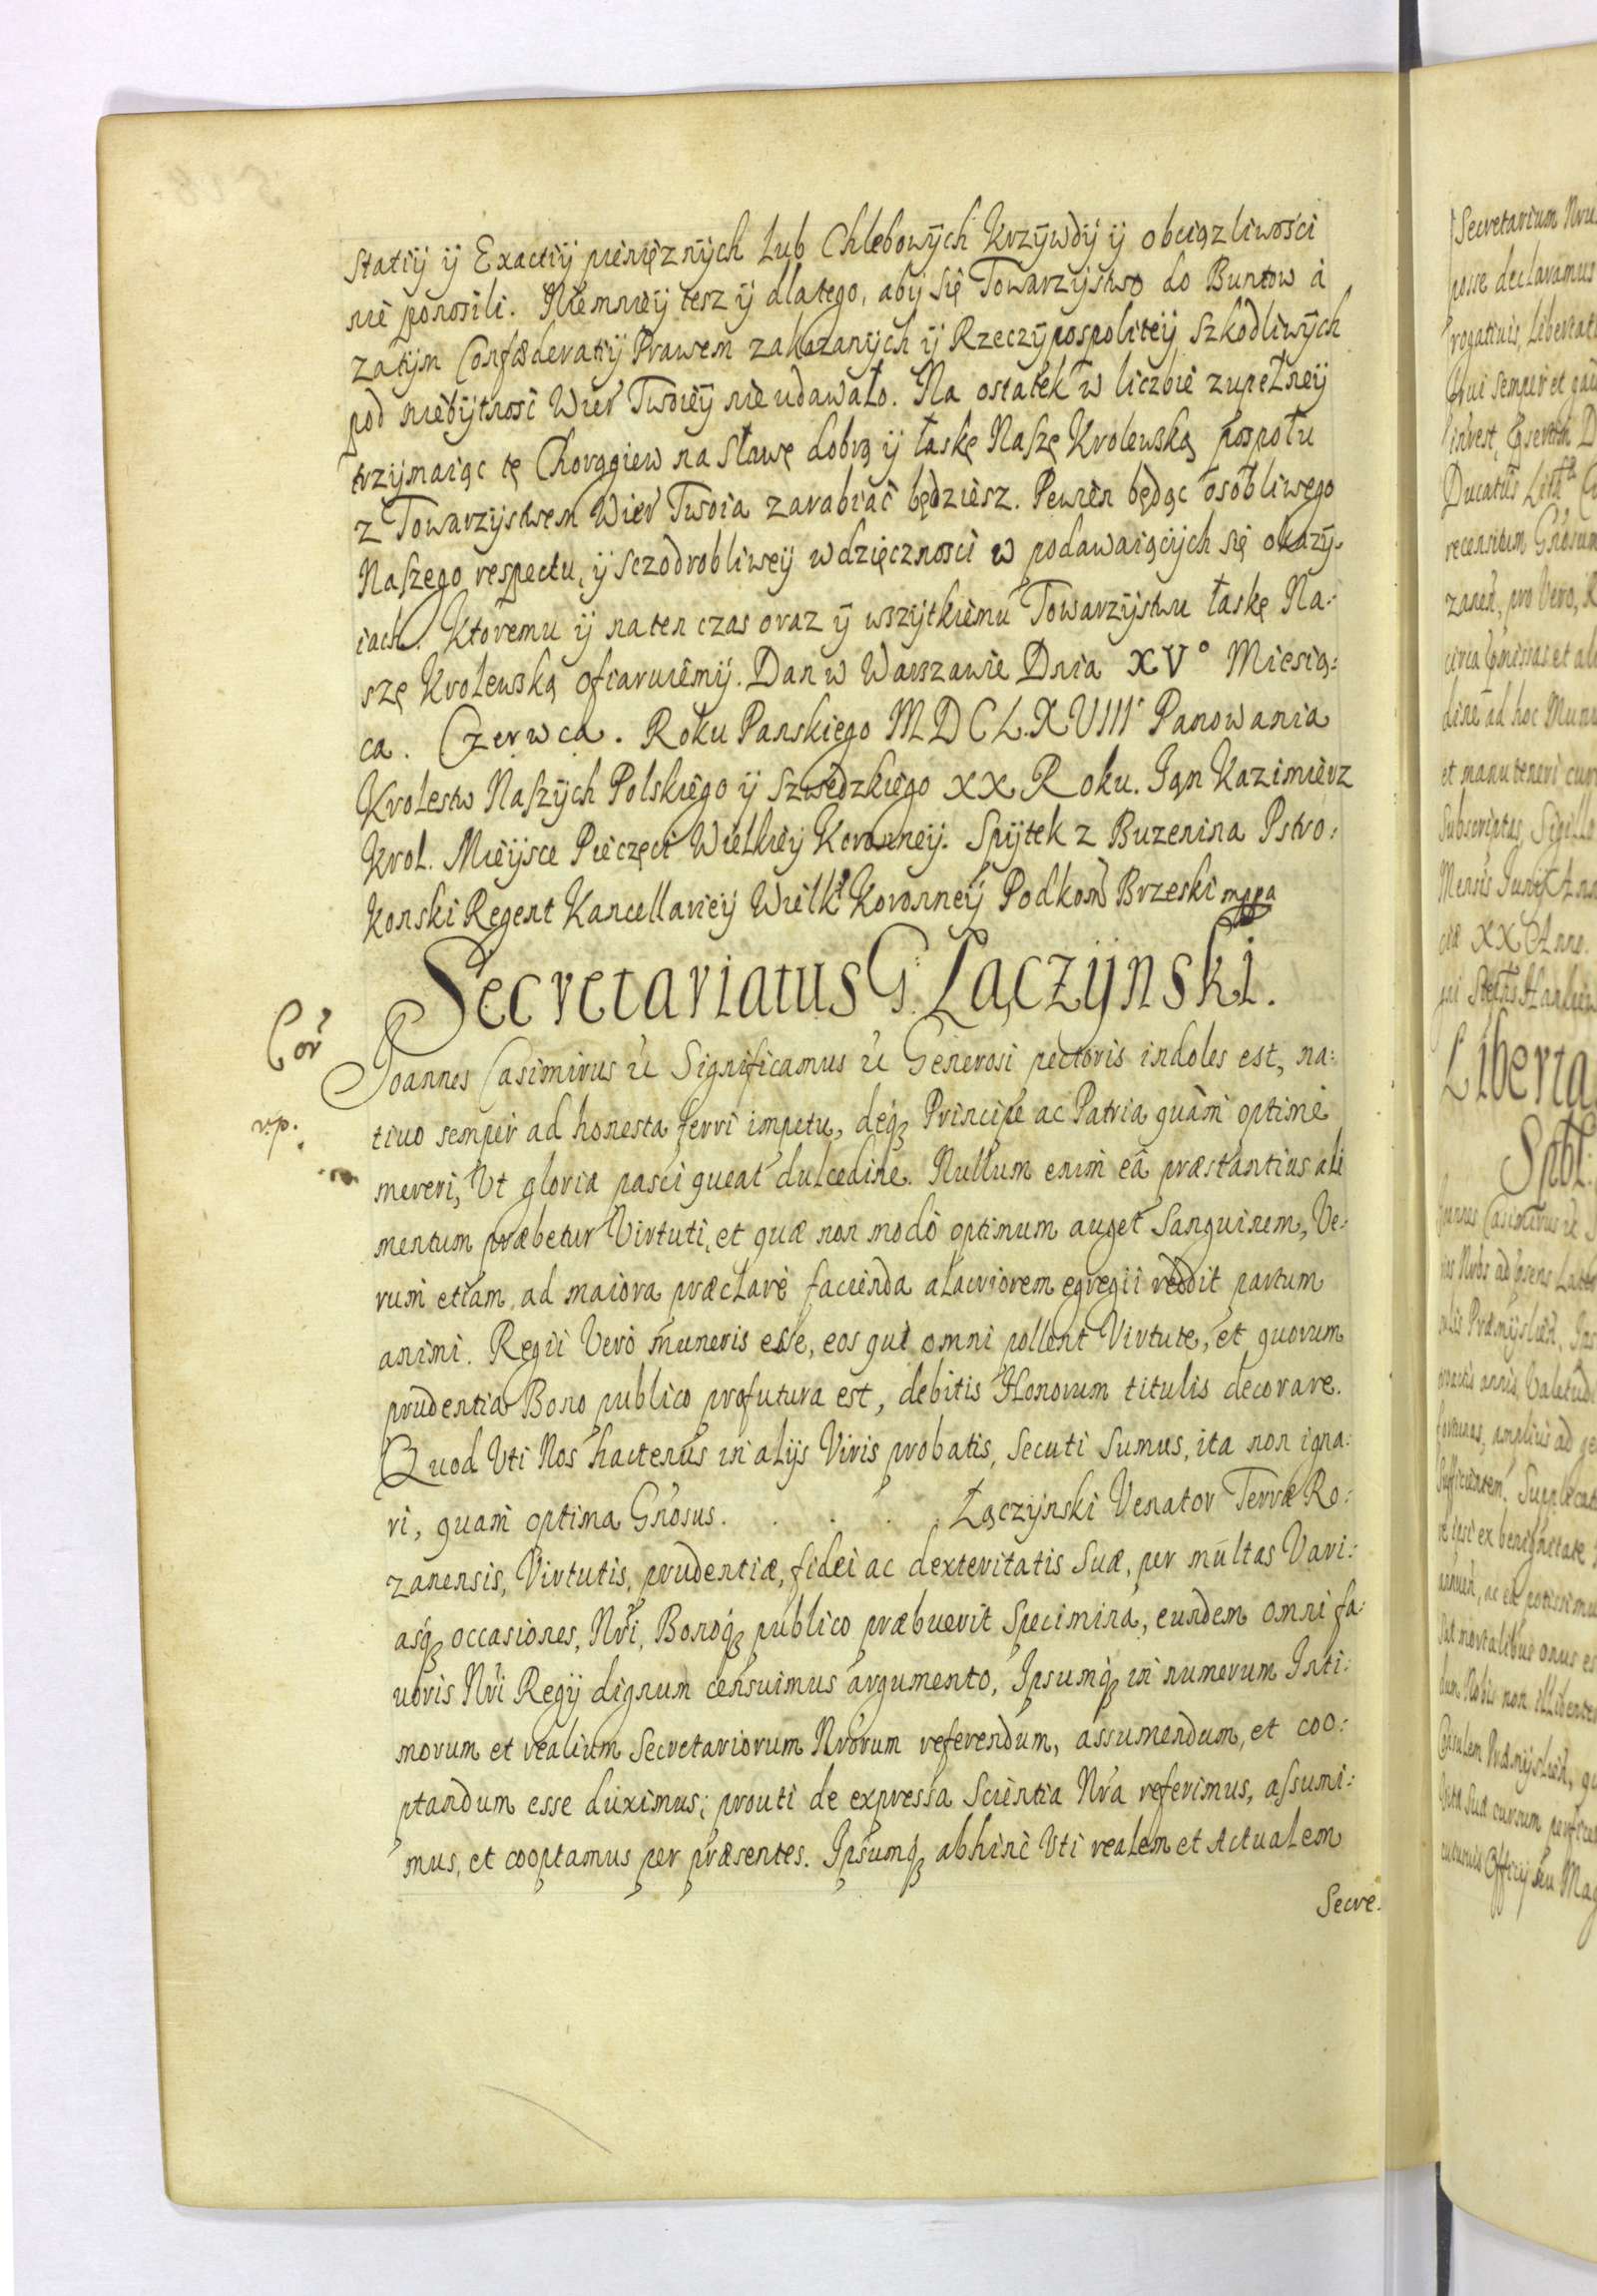 Statiÿ ÿ Exactiÿ pienięznÿch Lub Chlebowÿch Krzÿwdÿ ÿ obciązliwości
nie ponosili. Niemnieÿ tesz ÿ dlatego, abÿ Się Towarzÿstwo do Buntow i
zatÿm Confœderatiÿ Prawem zakazanÿch ÿ Rzeczÿpospoliteÿ Szkodliwÿch
pod niebÿtnosć Wier Twoieÿ nie udawało. Na ostatek w liczbie zupełneÿ
trzÿmaiąc tę Chorągiew na Sławę dobrą ÿ łaskę Naszę Krolewską pospołu
z Towarzÿstwem Wier Twoia zarabiać będziesz. Pewien będąc osobliwego
Naszego respectu, ÿ Sczodrobliweÿ wdzięcznosci w podawaiącÿch się okazÿ-
iach. Ktoremu ÿ na ten czas oraz ÿ wszÿtkiemu Towarzÿstwu łaskę Na:
szę Krolewską ofiaruiemÿ. Dan w Warszawie Dnia XV° Miesią:
ca. Czerwca. Roku Panskiego MDCL.XVIII° Panowania
Krolestw Naszÿch Polskiego ÿ Szwedzkiego XX Roku. Jan Kazimierz
Krol. Mieÿsce Pieczęci Wielkieÿ Koronneÿ. Spÿtek z Buzenina Pstro:
konski Regent Kancellarieÿ Wielk: Koronneÿ Podkom Brzeski mppa
Secretariatus G: Łączÿnski.
Cor
Joannes Casimirus &c Significamus &c Generosi pectoris indoles est, na:
rp.
tiuo semper ad honesta ferri impetu, deq₃ Principe ac Patria quàm optimè
mereri, Vt gloria pasci queat dulcedine. Nullum enim eâ præstantius ali
mentum præbetur Virtuti, et quæ non modò optimum auget Sanguinem, Ve-
rum etiam, ad maiora præclarè facienda alacriorem egregii reddit partum
animi. Regii Verò muneris esse, eos qui omni pollent Virtute, et quorum
prudentia Bono publico profutura est, debitis Honorum titulis decorare.
Quod Vti Nos hactenus in alÿs Viris probatis, Secuti Sumus, ita non igna:
ri, quam optima Gnosus. . . . . . Łączÿnski Venator Terræ Ro:
zanensis, Virtutis, prudentiæ, fidei ac dexteritatis Suæ, per multas Vari:
asq₃ occasiones, Nri, Bonoq₃ publico præbuerit Specimina, eundem omni fa:
uoris Nri Regÿ dignum censuimus argumento, Ipsumq₃ in numerum Inti:
morum et realium Secretariorum Nrorum referendum, assumendum, et coo:
ptandum esse duximus; prouti de expressa Scientia Nra referimus, assumi:
mus, et cooptamus per præsentes. Ipsumq₃ abhinc Vti realem et Actualem
Secre.
Secretarium Nru
posse declaramus
rogatiuis, Libertat
frui semper et gau
recensitum Gnosum
zanen, pro Vero, R
dine ad hoc Munu
et manu teneri cur
Subscriptas, Sigillo
Mensis Junÿ Ann
ciæ XX Anno.
Liberta
Spbl: